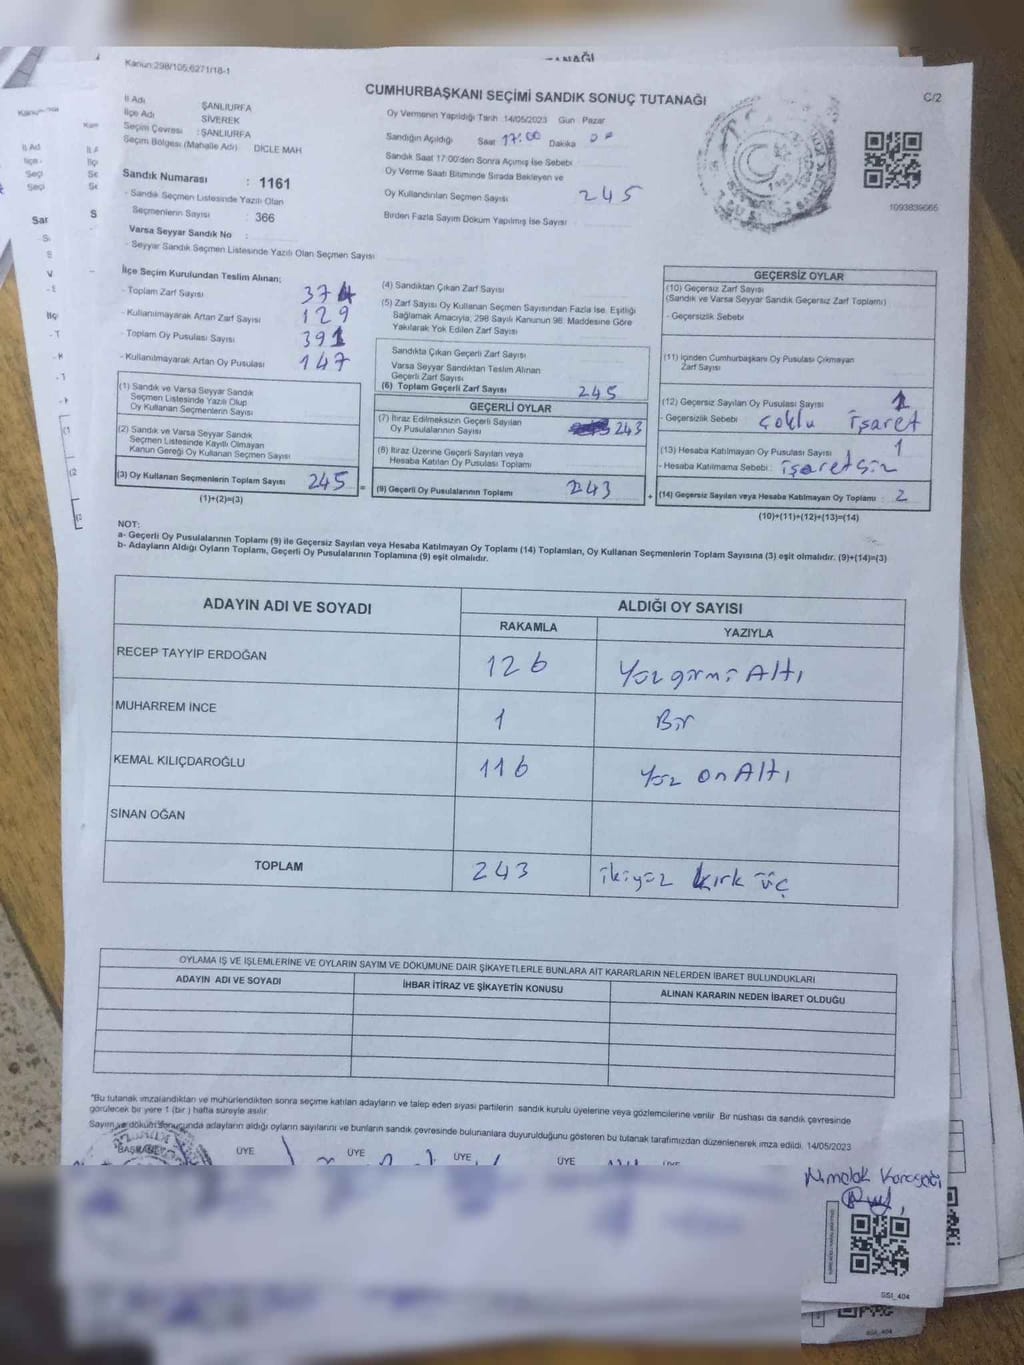 Kanun:298/105;6271/18-1
CUMHURBAŞKANI SEÇİMİ SANDIK SONUÇ TUTANAĞI
C/2
İl Adı ŞANLIURFA
İlçe Adı SİVEREK
Seçim Çevresi : ŞANLIURFA
Seçim Bölgesi (Mahalle Adı) DİCLE MAH
Sandık Numarası : 1161
- Sandık Seçmen Listesinde Yazılı Olan
Seçmenlerin Sayısı : 366
Varsa Seyyar Sandık No :
- Seyyar Sandık Seçmen Listesinde Yazılı Olan Seçmen Sayısı
Oy Vermenin Yapıldığı Tarih : 14/05/2023 Gün Pazar
Sandığın Açıldığı Saat 17:00 Dakika
Sandık Saat 17:00'den Sonra Açımış İse Sebebi
Oy Verme Saati Bitiminde Sırada Bekleyen ve
Oy Kullandırılan Seçmen Sayısı 245
Birden Fazla Sayım Döküm Yapılmış İse Sayısı
1093839665
İlçe Seçim Kurulundan Teslim Alınan;
- Toplam Zarf Sayısı 374
- Kullanılmayarak Artan Zarf Sayısı 129
- Toplam Oy Pusulası Sayısı 391
- Kullanılmayarak Artan Oy Pusulası 147
(1) Sandık ve Varsa Seyyar Sandık
Seçmen Listesinde Yazılı Olup
Oy Kullanan Seçmenlerin Sayısı
(2) Sandık ve Varsa Seyyar Sandık
Seçmen Listesinde Kayıtlı Olmayan
Kanun Gereği Oy Kullanan Seçmen Sayısı
(3) Oy Kullanan Seçmenlerin Toplam Sayısı 245
(1)+(2)=(3)
(4) Sandıktan Çıkan Zarf Sayısı
(5) Zarf Sayısı Oy Kullanan Seçmen Sayısından Fazla İse, Eşitliği
Sağlamak Amacıyla, 298 Sayılı Kanunun 98. Maddesine Göre
Yakılarak Yok Edilen Zarf Sayısı
Sandıkta Çıkan Geçerli Zarf Sayısı
Varsa Seyyar Sandıktan Teslim Alınan
Geçerli Zarf Sayısı
(6) Toplam Geçerli Zarf Sayısı 245
GEÇERLİ OYLAR
(7) İtiraz Edilmeksizin Geçerli Sayılan
Oy Pusulalarının Sayısı 243
(8) İtiraz Üzerine Geçerli Sayılan veya
Hesaba Katılan Oy Pusulası Toplamı
= (9) Geçerli Oy Pusulalarının Toplamı 243
GEÇERSİZ OYLAR
(10) Geçersiz Zarf Sayısı
(Sandık ve Varsa Seyyar Sandık Geçersiz Zarf Toplamı)
- Geçersizlik Sebebi
(11) İçinden Cumhurbaşkanı Oy Pusulası Çıkmayan
Zarf Sayısı
(12) Geçersiz Sayılan Oy Pusulası Sayısı 1
- Geçersizlik Sebebi : Çoklu işaret
(13) Hesaba Katılmayan Oy Pusulası Sayısı 1
- Hesaba Katılmama Sebebi : işaretsiz
+ (14) Geçersiz Sayılan veya Hesaba Katılmayan Oy Toplamı : 2
(10)+(11)+(12)+(13)=(14)
NOT:
a- Geçerli Oy Pusulalarının Toplamı (9) ile Geçersiz Sayılan veya Hesaba Katılmayan Oy Toplamı (14) Toplamları, Oy Kullanan Seçmenlerin Toplam Sayısına (3) eşit olmalıdır. (9)+(14)=(3)
b- Adayların Aldığı Oyların Toplamı, Geçerli Oy Pusulalarının Toplamına (9) eşit olmalıdır.
ADAYIN ADI VE SOYADI ALDIĞI OY SAYISI
RAKAMLA YAZIYLA
RECEP TAYYİP ERDOĞAN 126 Yüz yirmi Altı
MUHARREM İNCE 1 Bir
KEMAL KILIÇDAROĞLU 116 Yüz on Altı
SİNAN OĞAN
TOPLAM 243 ikiyüz kırk üç
OYLAMA İŞ VE İŞLEMLERİNE VE OYLARIN SAYIM VE DÖKÜMÜNE DAİR ŞİKAYETLERLE BUNLARA AİT KARARLARIN NELERDEN İBARET BULUNDUKLARI
ADAYIN ADI VE SOYADI İHBAR İTİRAZ VE ŞİKAYETİN KONUSU ALINAN KARARIN NEDEN İBARET OLDUĞU
"Bu tutanak imzalandıktan ve mühürlendikten sonra seçime katılan adayların ve talep eden siyasi partilerin sandık kurulu üyelerine veya gözlemcilerine verilir. Bir nüshası da sandık çevresinde
görülecek bir yere 1 (bir ) hafta süreyle asılır.
Sayım ve döküm sonucunda adayların aldığı oyların sayılarını ve bunların sandık çevresinde bulunanlara duyurulduğunu gösteren bu tutanak tarafımızdan düzenlenerek imza edildi. 14/05/2023
BAŞKAN ÜYE ÜYE ÜYE ÜYE ÜYE
SSI_404
SSI_404